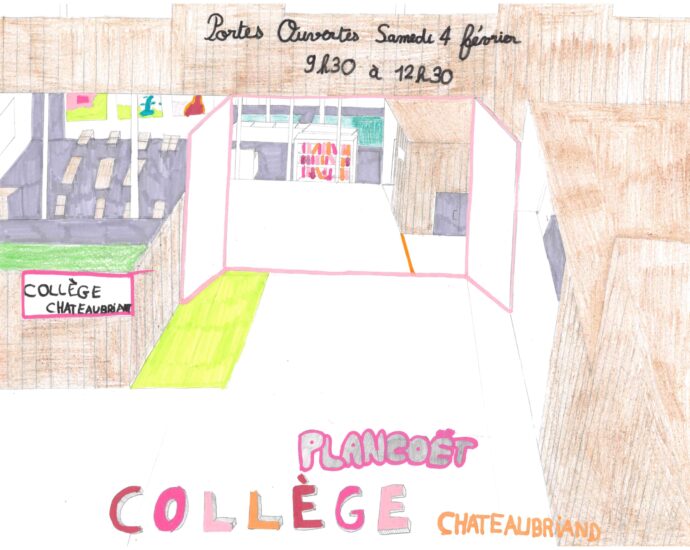 Portes Ouvertes Samedi 4 février
9h30 à 12h30
COLLÈGE
CHATEAUBRIAND
PLANCOËT
COLLÈGE
CHATEAUBRIAND